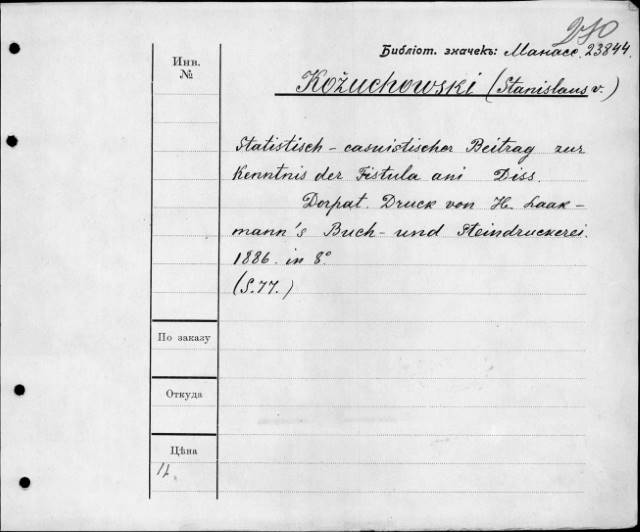 Библіот. значекъ: Манасс. 23844.
Инв.
№
Kožuchowski (Stanislaus v.)
Statistisch-casuistischer Beitrag zur
Kenntnis der Fistula ani Diss.
Dorpat. Druck von H. Laak-
mann's Buch- und Steindruckerei.
1886. in 8°
(S. 77.)
По заказу
Откуда
Цѣна